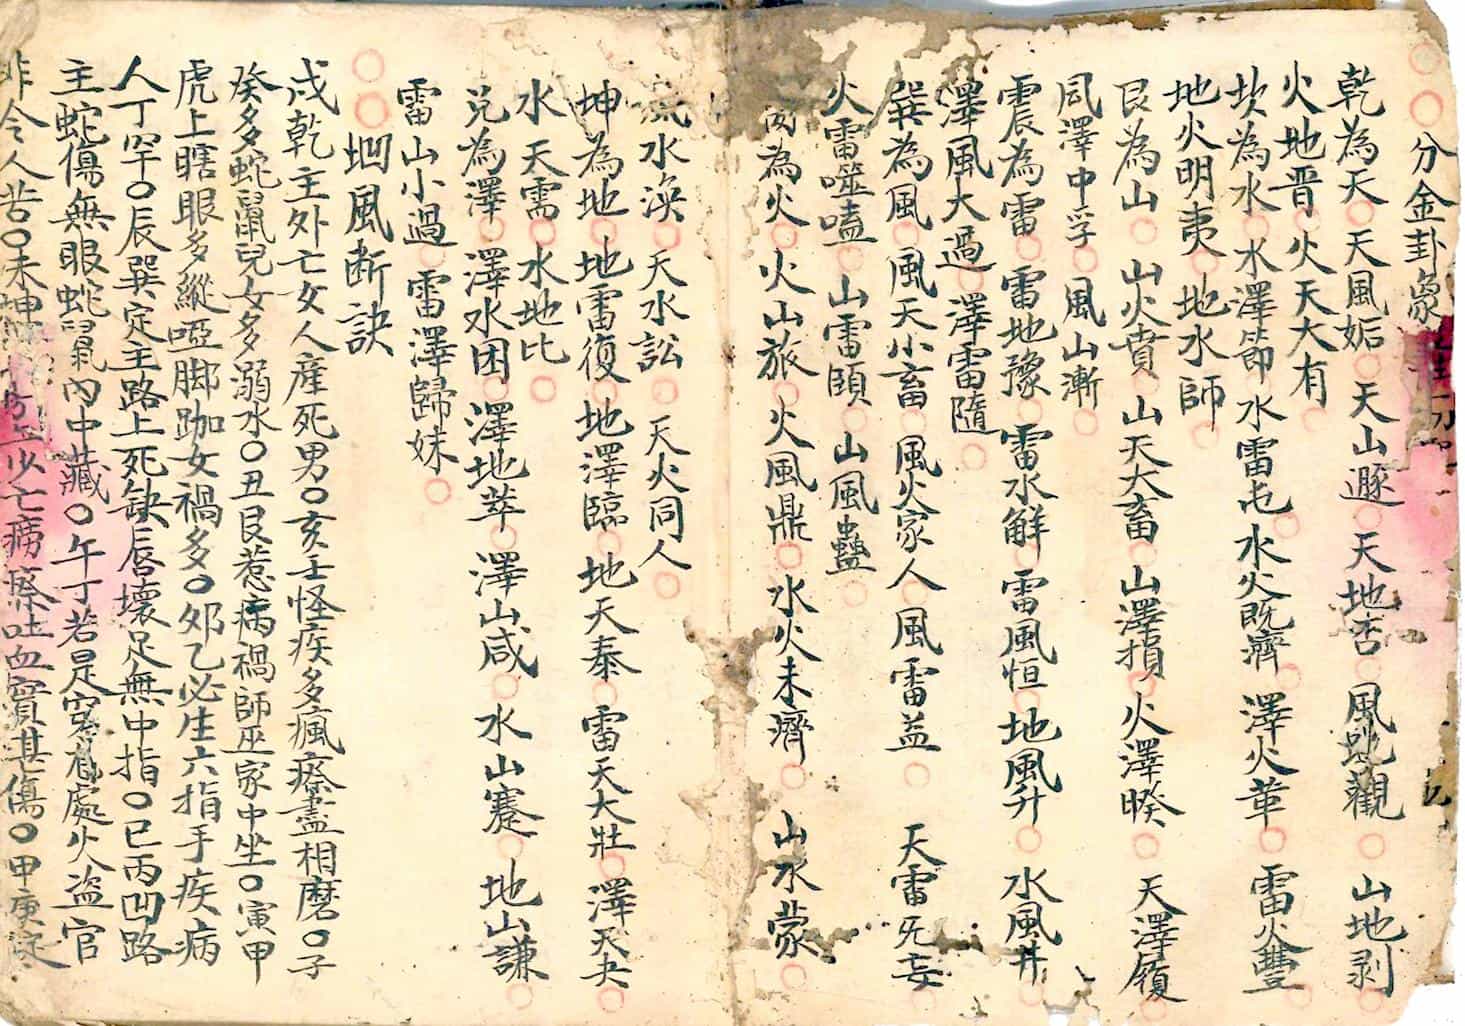 分金卦象
乾為天 天風姤 天山遯 天地否 風地觀 山地剥
火地晋 火天大有
坎為水 水澤節 水雷屯 水火既濟 澤火革 雷火豐
地火明夷 地水師
艮為山 山火賁 山天大畜 山澤損 火澤睽 天澤履
風澤中孚 風山漸
震為雷 雷地豫 雷水解 雷風恒 地風升 水風井
澤風大過 澤雷隨
巽為風 風天小畜 風火家人 風雷益 天雷旡妄
火雷噬嗑 山雷頤 山風蠱
為火 火山旅 火風鼎 水火未濟 山水蒙
水渙 天水訟 天火同人
坤為地 地雷復 地澤臨 地天泰 雷天大壯 澤天夬
水天需 水地比
兑為澤 澤水困 澤地萃 澤山咸 水山蹇 地山謙
雷山小過 雷澤歸妹
凹風断訣
戌乾主外亡女人産死男〇亥壬怪疾多瘋瘵盡相磨〇子
癸多蛇鼠兒女多溺水〇丑艮惹病禍師巫家中坐〇寅甲
虎上瞎眼多縱啞脚跏女禍多〇夘乙必生六指手疾病
人丁罕〇辰巽定主路上死缺唇壞足無中指〇巳丙凹路
主蛇傷無眼蛇鼠內中藏〇午丁若是穿處火盗官
非令人苦〇未坤少亡癆瘵吐血實甚傷〇甲庚